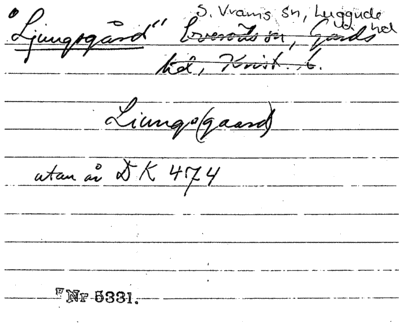 "Ljungsgård" S. Vrams sn, Luggude hd
Everöds sn, Gärds
hd, Krist. l.
Liungs(gaard)
utan år DK 474
Nr 5331.